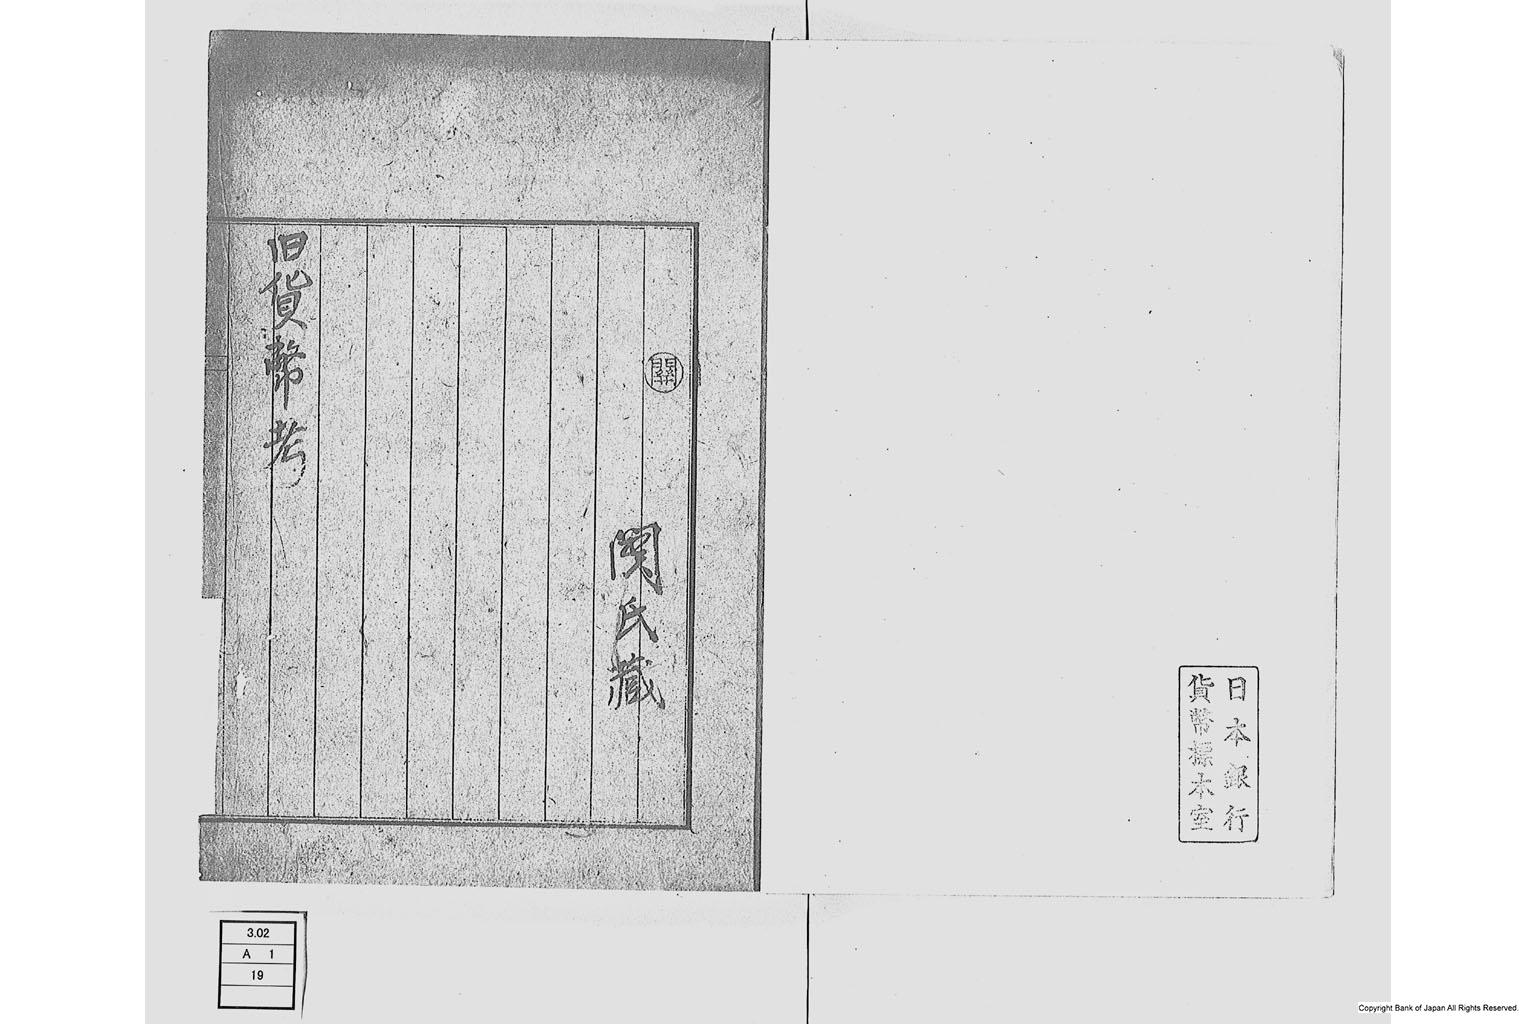 日本銀行
貨幣標本室
關
関氏蔵
旧貨幣考
3.02
A 1
19
Copyright Bank of Japan All Rights Reserved.